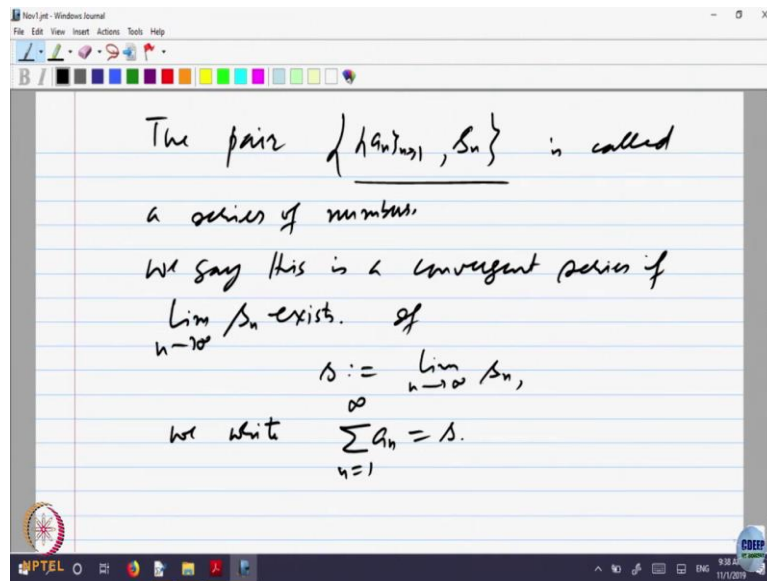 Nov1.jnt - Windows Journal
File Edit View Insert Actions Tools Help
B I
The pair { {an}n≥1 , Sn } is called
a series of numbers.
We say this is a convergent series if
Lim n→∞ Sn exists. If
s := lim n→∞ Sn,
we write ∞ Σ n=1 an = s.
NPTEL
CDEEP
ENG
9:38 A
11/1/2019